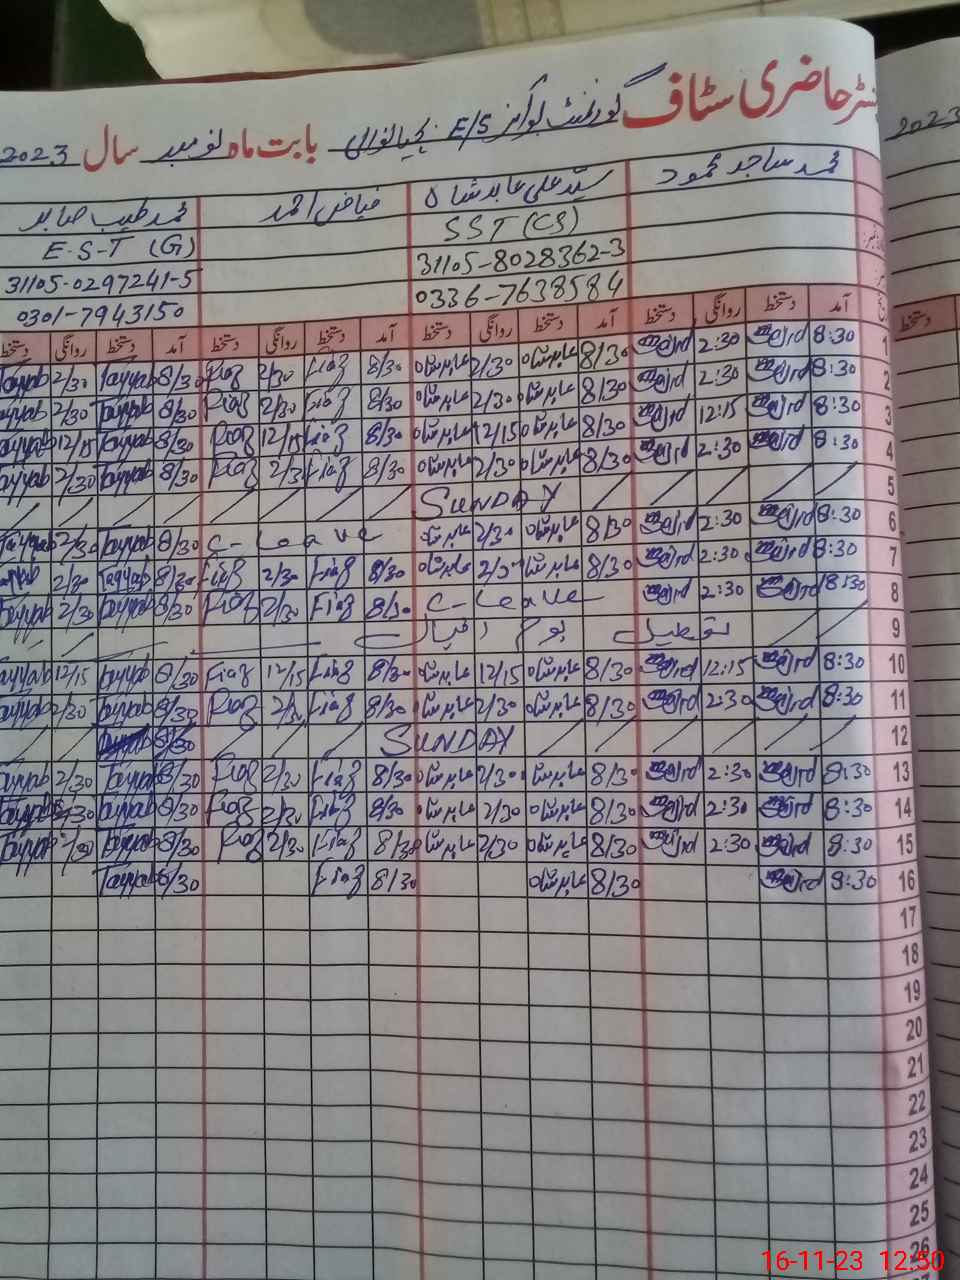 رجسٹر حاضری سٹاف گورنمنٹ بوائز E/S بابت ماہ نومبر سال 2023
محمد ساجد محمود سید علی عابد شاہ فیاض احمد محمد طیب صابر
SST (CS) E-S-T (G)
31105-8028362-3 31105-0297241-5
0336-7638584 0301-7943150
آمد دستخط روانگی دستخط آمد دستخط روانگی دستخط آمد دستخط روانگی دستخط آمد دستخط روانگی دستخط
1 8:30 Sajid 2:30 Sajid 8/30 عابد شاہ 2/30 عابد شاہ 8/30 Fiaz 2/30 Fiaz 8/30 Tayyab 2/30 Tayyab
2 8:30 Sajid 2:30 Sajid 8/30 عابد شاہ 2/30 عابد شاہ 8/30 Fiaz 2/30 Fiaz 8/30 Tayyab 2/30 Tayyab
3 8:30 Sajid 12:15 Sajid 8/30 عابد شاہ 12/15 عابد شاہ 8/30 Fiaz 12/15 Fiaz 8/30 Tayyab 12/15 Tayyab
4 8:30 Sajid 2:30 Sajid 8/30 عابد شاہ 2/30 عابد شاہ 8/30 Fiaz 2/30 Fiaz 8/30 Tayyab 2/30 Tayyab
5 SUNDAY
6 8:30 Sajid 2:30 Sajid 8/30 عابد شاہ 2/30 عابد شاہ C-Leave 8/30 Tayyab 2/30 Tayyab
7 8:30 Sajid 2:30 Sajid 8/30 عابد شاہ 2/30 عابد شاہ 8/30 Fiaz 2/30 Fiaz 8/30 Tayyab 2/30 Tayyab
8 8:30 Sajid 2:30 Sajid C-Leave 8/30 Fiaz 2/30 Fiaz 8/30 Tayyab 2/30 Tayyab
9 تعطیل یوم اقبال
10 8:30 Sajid 12:15 Sajid 8/30 عابد شاہ 12/15 عابد شاہ 8/30 Fiaz 12/15 Fiaz 8/30 Tayyab 12/15 Tayyab
11 8:30 Sajid 2:30 Sajid 8/30 عابد شاہ 2/30 عابد شاہ 8/30 Fiaz 2/30 Fiaz 8/30 Tayyab 2/30 Tayyab
12 SUNDAY 8/30
13 8:30 Sajid 2:30 Sajid 8/30 عابد شاہ 2/30 عابد شاہ 8/30 Fiaz 2/30 Fiaz 8/30 Tayyab 2/30 Tayyab
14 8:30 Sajid 2:30 Sajid 8/30 عابد شاہ 2/30 عابد شاہ 8/30 Fiaz 2/30 Fiaz 8/30 Tayyab 2/30 Tayyab
15 8:30 Sajid 2:30 Sajid 8/30 عابد شاہ 2/30 عابد شاہ 8/30 Fiaz 2/30 Fiaz 8/30 Tayyab 2/30 Tayyab
16 8:30 Sajid 8/30 عابد شاہ 8/30 Fiaz 8/30 Tayyab
17
18
19
20
21
22
23
24
25
26
2023
دستخط
16-11-23 12:50